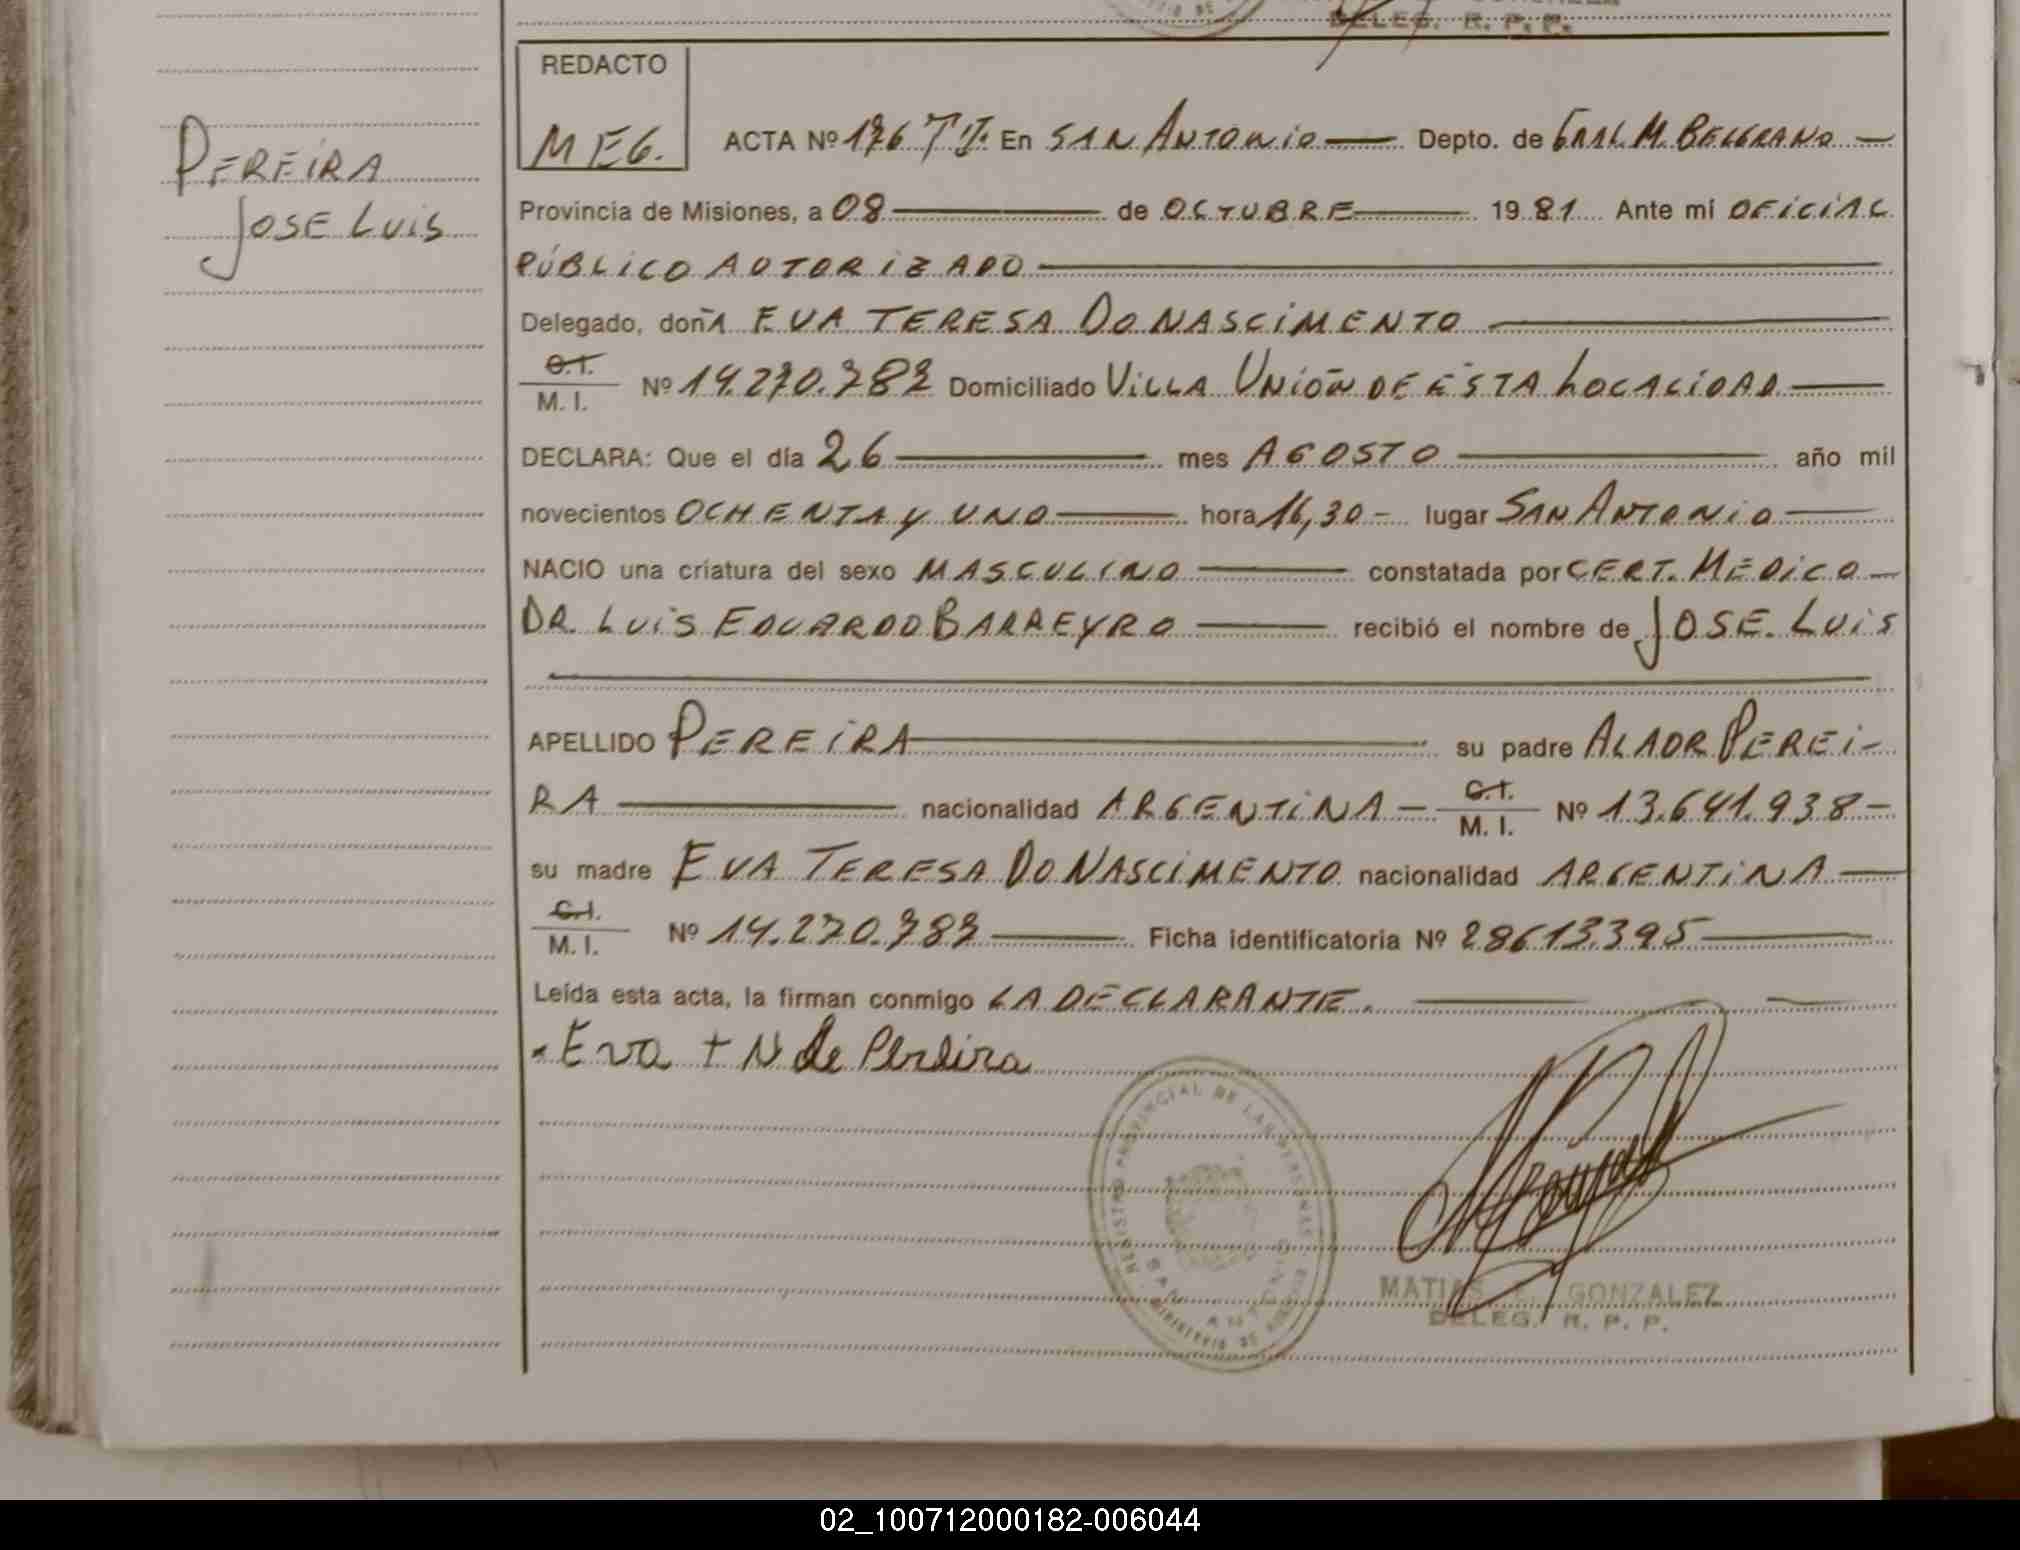 DELEG. R. P. P.
REDACTO
MEG.
PEREIRA
JOSE LUIS
ACTA Nº 176 T II. En SAN ANTONIO — Depto. de GRAL. M. BELGRANO —
Provincia de Misiones, a 08 — de OCTUBRE — 1981 Ante mi OFICIAL
PÚBLICO AUTORIZADO —
Delegado, doñA EVA TERESA DO NASCIMENTO —
C.I.
M. I. Nº 14.270.787 Domiciliado VILLA UNIÓN DE ESTA LOCALIDAD —
DECLARA: Que el día 26 — mes AGOSTO — año mil
novecientos OCHENTA y UNO — hora 16,30 - lugar SAN ANTONIO —
NACIO una criatura del sexo MASCULINO — constatada por CERT. MEDICO —
DR. LUIS EDUARDO BARREYRO — recibió el nombre de JOSE LUIS
APELLIDO PEREIRA — su padre ALAOR PEREI-
RA — nacionalidad ARGENTINA — C.I. M. I. Nº 13.641.938 -
su madre EVA TERESA DO NASCIMENTO nacionalidad ARGENTINA —
C.I.
M. I. Nº 14.270.787 — Ficha identificatoria Nº 28613395 —
Leída esta acta, la firman conmigo LA DECLARANTE. —
Eva t N de Pereira
REGISTRO PROVINCIAL DE LAS PERSONAS
SAN ANTONIO
MINISTERIO DE GOBIERNO
MATIAS E. GONZALEZ
DELEG. R. P. P.
02_100712000182-006044